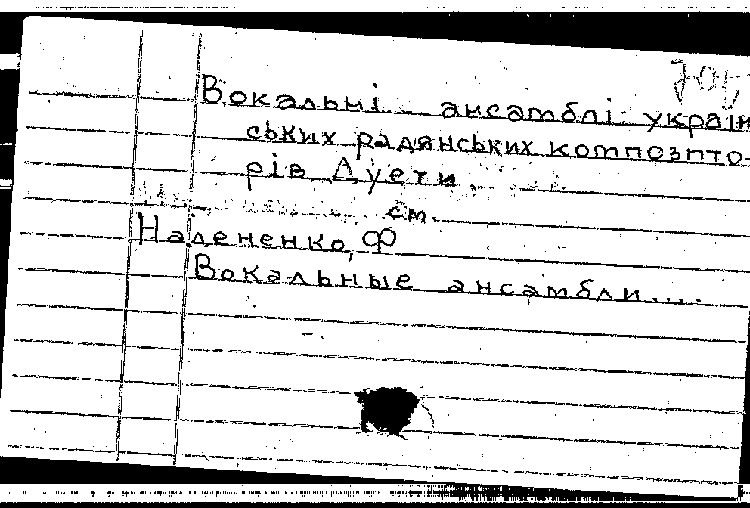 Вокальні ансамблі україн
ських радянських композито-
рів Дуети
см.
Надененко, Ф
Вокальные ансамбли....